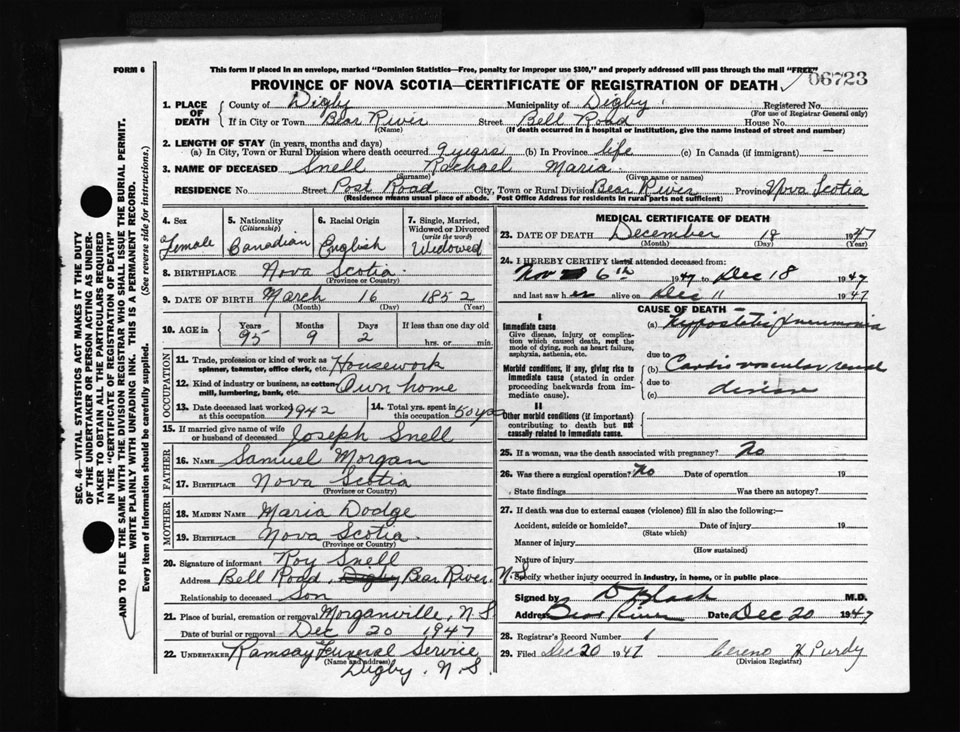 FORM 6
This form if placed in an envelope, marked "Dominion Statistics—Free, penalty for improper use $300," and properly addressed will pass through the mail "FREE"
06723
PROVINCE OF NOVA SCOTIA—CERTIFICATE OF REGISTRATION OF DEATH
1. PLACE OF DEATH
County of Digby Municipality of Digby Registered No.
(For use of Registrar General only)
If in City or Town Bear River Street Bell Road House No.
(Name) (If death occurred in a hospital or institution, give the name instead of street and number)
2. LENGTH OF STAY (in years, months and days)
(a) In City, Town or Rural Division where death occurred 9 years (b) In Province life (c) In Canada (if immigrant) —
3. NAME OF DECEASED Snell Rachael Maria
(Surname) (Given name or names)
RESIDENCE No. Street Post Road City, Town or Rural Division Bear River Province Nova Scotia
(Residence means usual place of abode. Post Office Address for residents in rural parts not sufficient)
4. Sex
Female
5. Nationality
(Citizenship)
Canadian
6. Racial Origin
English
7. Single, Married, Widowed or Divorced
(write the word)
Widowed
8. BIRTHPLACE Nova Scotia
(Province or Country)
9. DATE OF BIRTH March 16 1852
(Month) (Day) (Year)
10. AGE in Years Months Days If less than one day old
95 9 2 hrs. or min.
OCCUPATION
11. Trade, profession or kind of work as spinner, teamster, office clerk, etc. Housework
12. Kind of industry or business, as cotton mill, lumbering, bank, etc. Own home
13. Date deceased last worked at this occupation 1942
14. Total yrs. spent in this occupation 60 yrs
15. If married give name of wife or husband of deceased Joseph Snell
FATHER
16. NAME Samuel Morgan
17. BIRTHPLACE Nova Scotia
(Province or Country)
MOTHER
18. MAIDEN NAME Maria Dodge
19. BIRTHPLACE Nova Scotia
(Province or Country)
20. Signature of informant Roy Snell
Address Bell Road, Digby Bear River, N.S.
Relationship to deceased Son
21. Place of burial, cremation or removal Morganville, N.S.
Date of burial or removal Dec 20 1947
22. UNDERTAKER Ramsay Funeral Service
(Name and address)
Digby. N.S.
MEDICAL CERTIFICATE OF DEATH
23. DATE OF DEATH December 18 1947
(Month) (Day) (Year)
24. I HEREBY CERTIFY that I attended deceased from:
Nov 6th 1947 to Dec 18 1947
and last saw her alive on Dec 11 1947
CAUSE OF DEATH
I
Immediate cause
Give disease, injury or complication which caused death, not the mode of dying, such as heart failure, asphyxia, asthenia, etc.
(a) Hypostatic Pneumonia
due to
Morbid conditions, if any, giving rise to immediate cause (stated in order proceeding backwards from immediate cause).
(b) Cardio vascular renal
due to
(c) disease
II
Other morbid conditions (if important) contributing to death but not causally related to immediate cause.
25. If a woman, was the death associated with pregnancy? No
26. Was there a surgical operation? No Date of operation 19
State findings Was there an autopsy?
27. If death was due to external causes (violence) fill in also the following:—
Accident, suicide or homicide? Date of injury 19
(State which)
Manner of injury
(How sustained)
Nature of injury
Specify whether injury occurred in industry, in home, or in public place
Signed by M.D.
Address Bear River Date Dec 20 1947
28. Registrar's Record Number 6
29. Filed Dec 20 1947 Cereno H Purdy
(Division Registrar)
SEC. 46—VITAL STATISTICS ACT MAKES IT THE DUTY
OF THE UNDERTAKER OR PERSON ACTING AS UNDER-
TAKER TO OBTAIN ALL THE PARTICULARS REQUIRED
IN THE "CERTIFICATE OF REGISTRATION OF DEATH"
AND TO FILE THE SAME WITH THE DIVISION REGISTRAR WHO SHALL ISSUE THE BURIAL PERMIT.
WRITE PLAINLY WITH UNFADING INK. THIS IS A PERMANENT RECORD.
Every item of information should be carefully supplied. (See reverse side for instructions.)